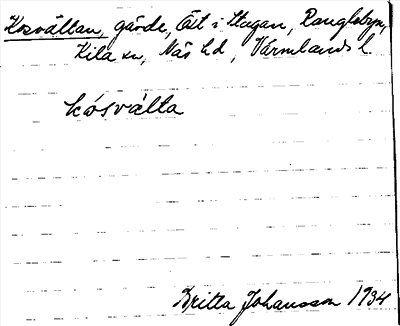 Kosvältan, gärde, Öst i Stugan, Ranglebyn,
Kila sn, Näs hd, Värmlands l.
kósvælta
Britta Johansson 1934